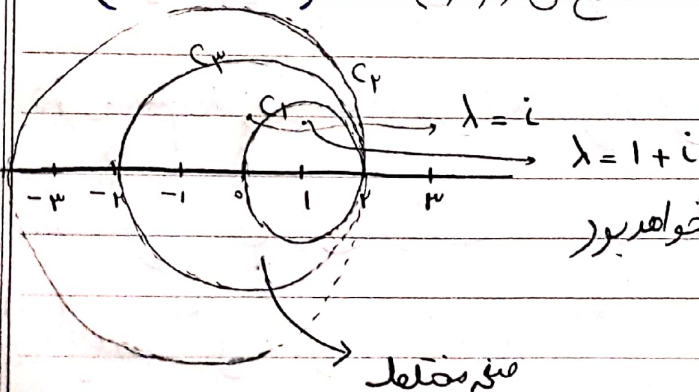 C۳
C۲
C۱
λ = i
λ = 1 + i
-۳ -۲ -۱ ۰ ۱ ۲ ۳
خواهد بود
صفحه مختلط